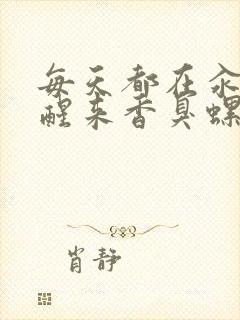 每天都在汆
醒来香臭螺
肖静